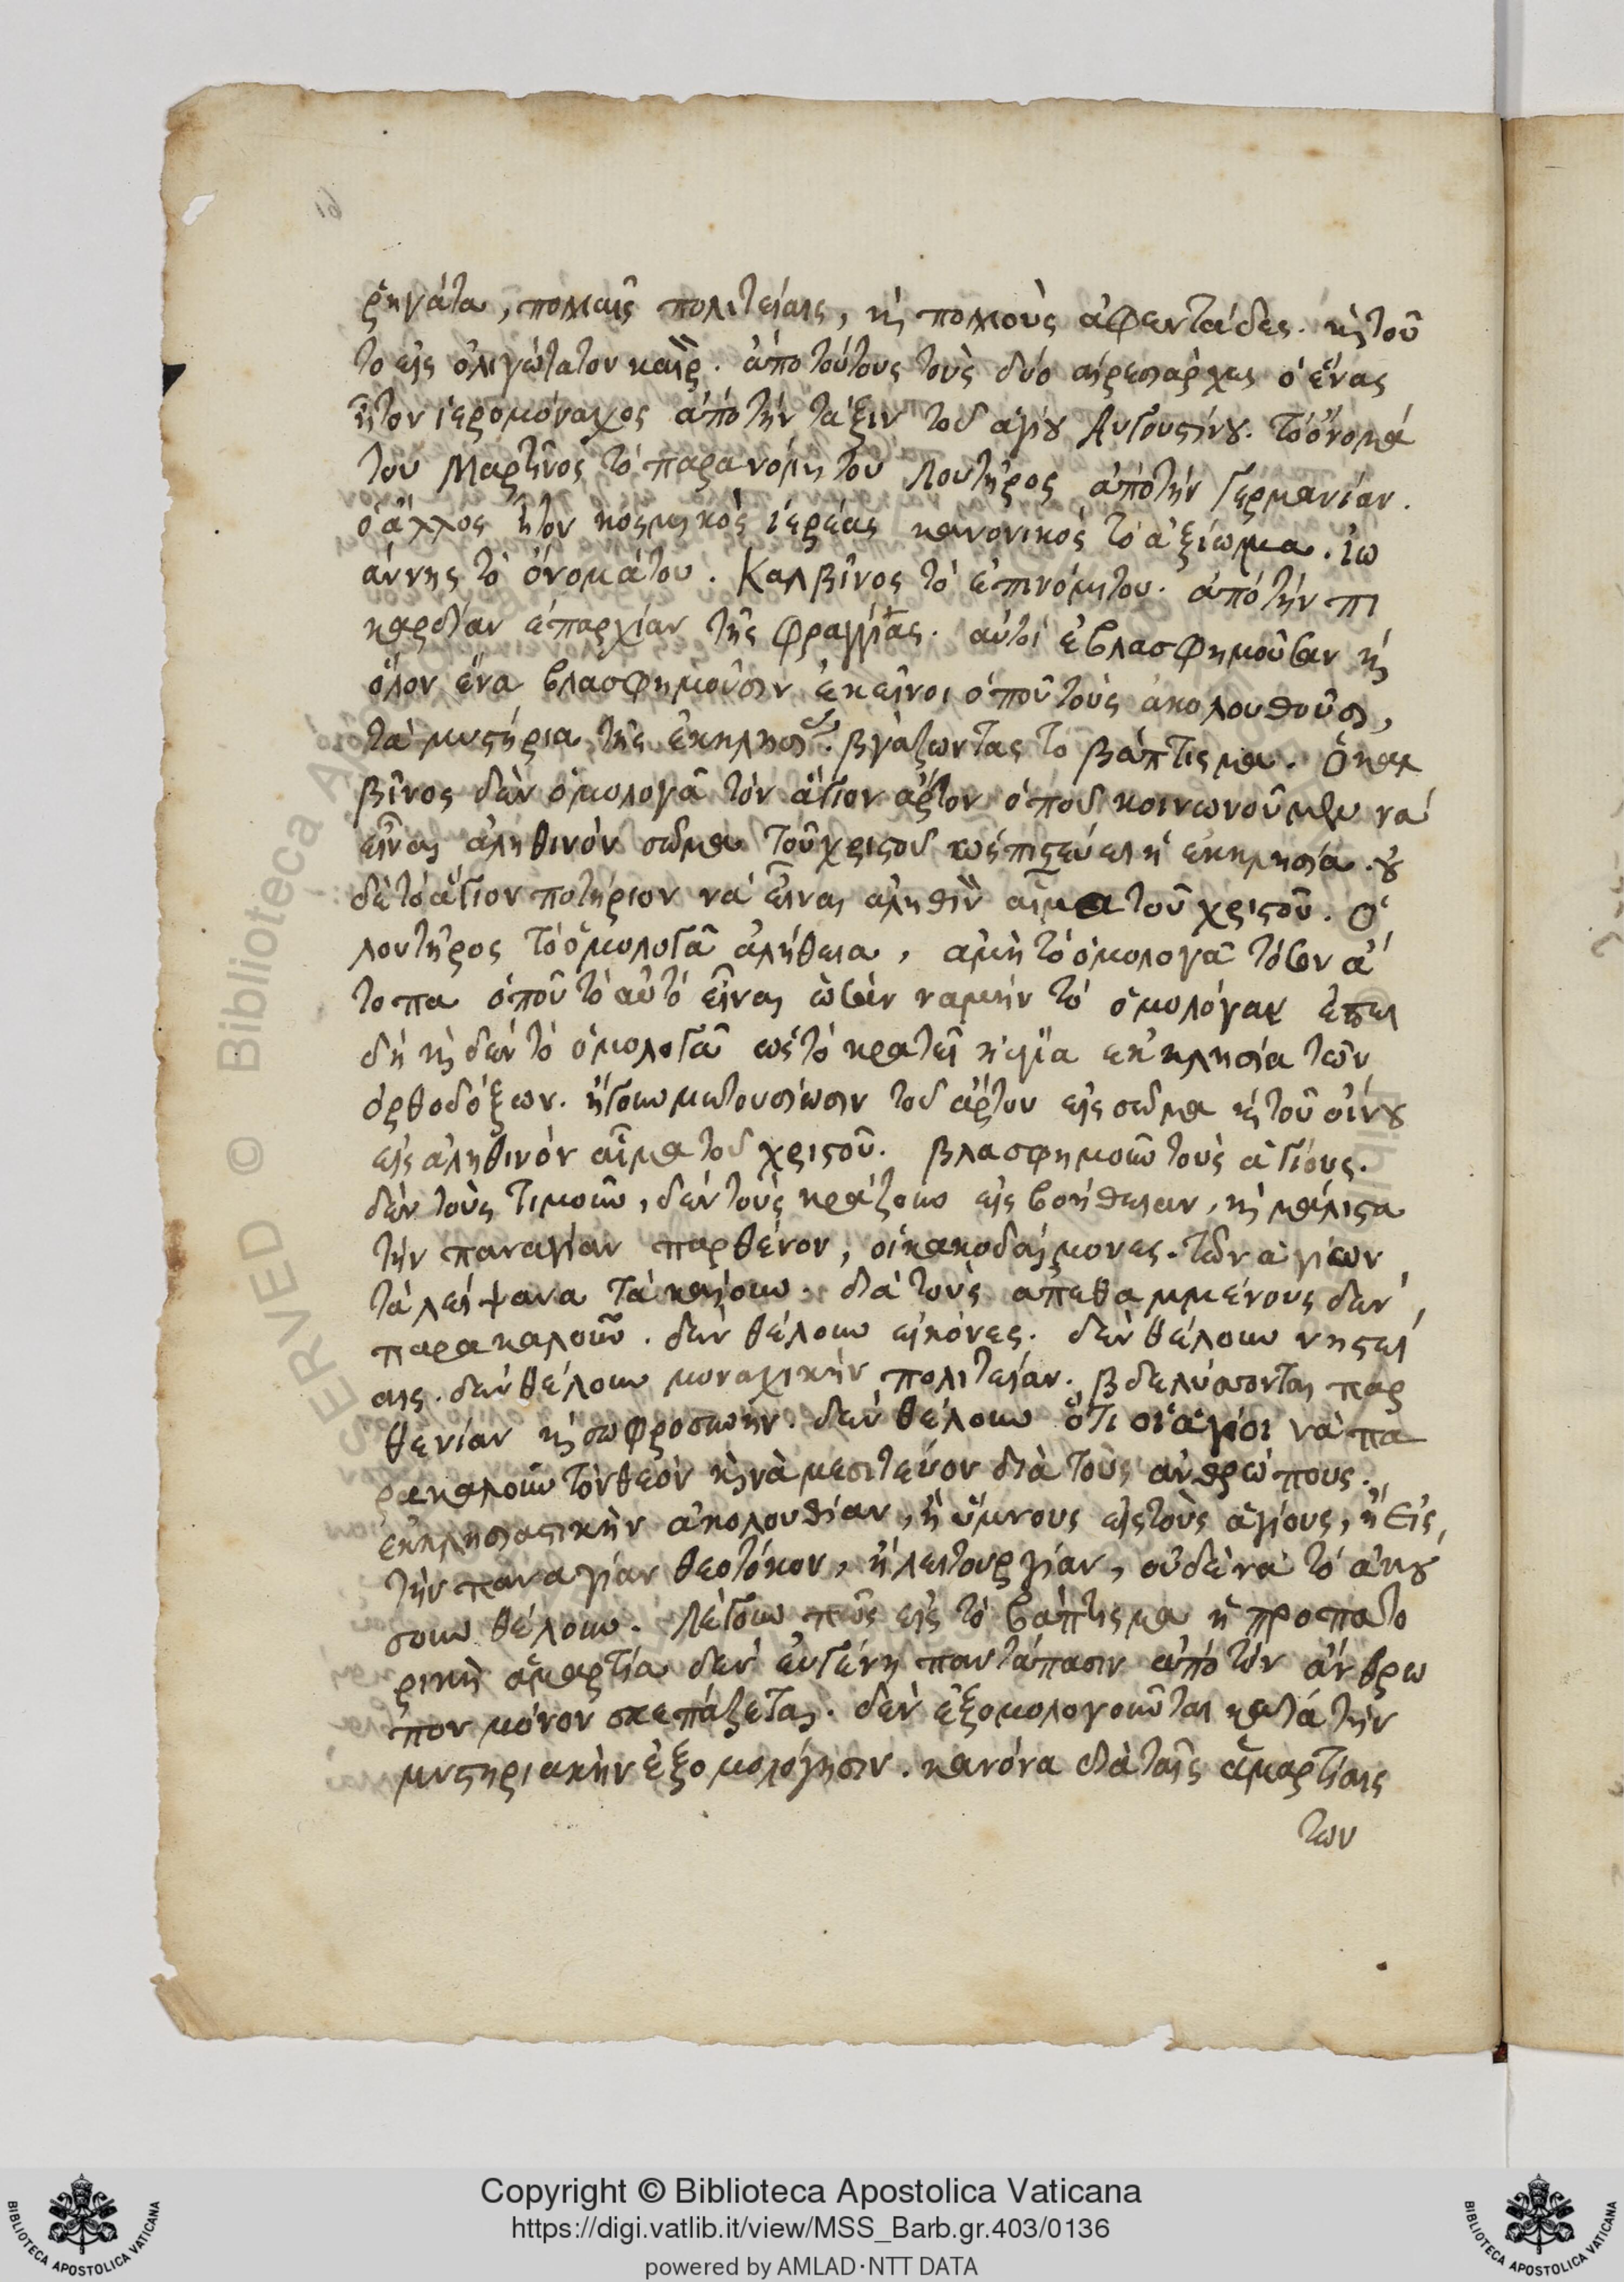 ῥηγάτα, πολλαῖς πολιτείαις, κὶ πολλοὺς ἀφεντάδες. κὶ τοῦ
το εἰς ὀλιγώτατον καιρ. ἀπο τούτους τοὺς δύο αἱρεσιάρχας ὁ ἕνας
ἦτον ἱερομόναχος ἀπὸ τὴν τάξιν τοῦ ἁγίου Αὐγουστίνου. τὸ ὄνομά
του Μαρτῖνος τὸ παρανόμι του Λουτῆρος ἀπὸ τὴν Γερμανίαν.
ὁ ἄλλος ἦτον κοσμικὸς ἱερέας κανονικός τὸ ἀξίωμα. ἰω
άννης τὸ ὄνομά του. Καλβῖνος τὸ ἐπινόμι του. ἀπὸ τὴν πι
καρδίαν ἐπαρχίαν τῆς Φραγγίας. αὐτοὶ ἐβλασφημοῦσαν κὶ
ὅλον ἕνα βλασφημοῦσιν ἐκεῖνοι ὁποῦ τοὺς ἀκολουθοῦσι,
τὰ μυστήρια τῆς ἐκκλησίας. βγάζωντας τὸ βάπτισμα. Ὁ καλ
βῖνος δὲν ὁμολογᾶ τὸν ἅγιον ἄρτον ὁποῦ κοινωνοῦμεν νὰ
εἶναι ἀληθινὸν σῶμα τοῦ χριστοῦ ὡς πιστεύει ἡ ἐκκλησία. οὐ
δὲ τὸ ἅγιον ποτήριον νὰ εἶναι ἀληθιν αἷμα τοῦ χριστοῦ. Ὁ
λουτῆρος τὸ ὁμολογᾶ ἀλήθεια, ἀμὴ τὸ ὁμολογᾶ τόσον ἄ
τοπα ὁποῦ τὸ αὐτὸ εἶναι ὡσὰν να μὴν τὸ ὁμολόγαν ἐπει
δὴ κὶ δὲν τὸ ὁμολογᾶ ὡς τὸ κρατεῖ ἡ ἁγία ἐκκλησία τῶν
ὀρθοδόξων. ἤγουν μετουσίωσιν τοῦ ἄρτου εἰς σῶμα κὶ τοῦ οἴνου
εἰς ἀληθινὸν αἷμα τοῦ χριστοῦ. βλασφημοῦν τοὺς ἁγίους.
δὲν τοὺς τιμοῦν, δὲν τοὺς κράζουν εἰς βοήθειαν, κὶ μάλιστα
τὴν παναγίαν παρθένον, οἱ κακοδαίμονες. τῶν ἁγίων
τὰ λείψανα τὰ καίουν. διὰ τοὺς ἀπεθαμμένους δὲν
παρακαλοῦν. δὲν θέλουν εἰκόνες. δὲν θέλουν νηστεί
αις. δὲν θέλουν μοναχικὴν πολιτείαν. βδελύσσονται παρ
θενίαν κὶ σωφροσύνην. δὲν θέλουν ὅτι οἱ ἅγιοι νὰ πα
ρακαλοῦν τὸν θεὸν κὶ νὰ μεσιτεύουν διὰ τοὺς ἀνθρώπους.
ἐκκλησιαστικὴν ἀκολουθίαν, ἢ ὕμνους εἰς τοὺς ἁγίους, ἢ εἰς
τὴν παναγίαν θεοτόκον, ἢ λειτουργίαν, οὐδὲ νὰ τὸ ἀκού
σουν θέλουν. Λέγουν πῶς εἰς τὸ βάπτισμα ἡ προπατο
ρικὴ ἁμαρτία δὲν εὐγένη παντάπασιν ἀπὸ τὸν ἄνθρω
πον μόνον σκεπάζεται. δὲν ἐξομολογοῦνται κατὰ τὴν
μυστηριακὴν ἐξομολόγησιν. κανόνα διὰ ταῖς ἁμαρτίαις
των
Copyright © Biblioteca Apostolica Vaticana
https://digi.vatlib.it/view/MSS_Barb.gr.403/0136
powered by AMLAD·NTT DATA